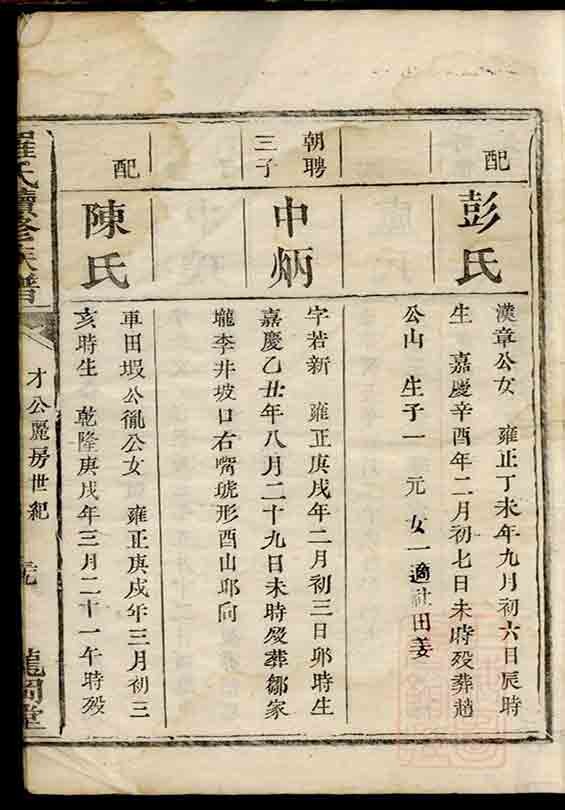 配
彭氏
漢章公女　雍正丁未年九月初六日辰時
生　嘉慶辛酉年二月初七日未時歿葬趙
公山　生子一　元　女一適社田姜
朝聘
三子
中炳
字若新　雍正庚戌年二月初三日卯時生
嘉慶乙丑年八月二十九日未時歿葬鄒家
壠李井坡口右嘴琥形酉山卯向
配
陳氏
車田塅公胤公女　雍正庚戌年三月初三
亥時生　乾隆庚戌年三月二十一午時歿
羅氏續修族譜
才公麗房世紀
龍岡堂